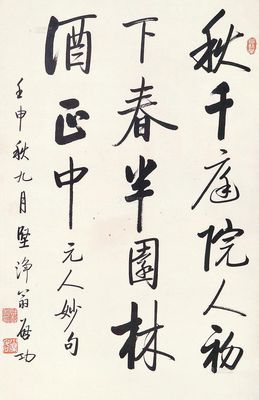 秋千庭院人初
下春半園林
酒正中元人妙句
壬申秋九月堅淨翁啟功